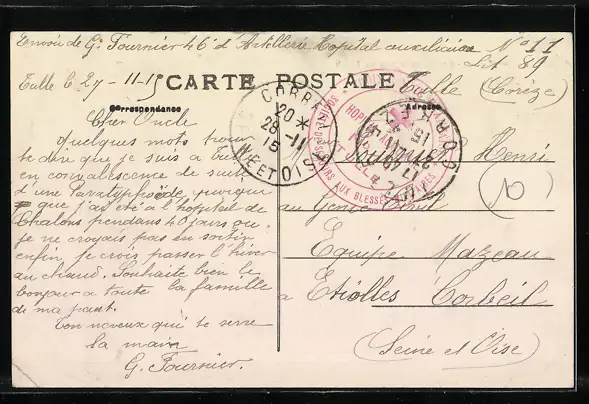 Envoi de G. Fournier 46e d'Artillerie Hopital auxiliaire No 11
Lit 89
Tulle le 27-11-15
CARTE POSTALE
Tulle (Corèze)
Correspondance
Adresse
CORBEIL
20 *
28-11
15
SEINE ET OISE
HOPITAL
AUX BLESSÉS
CORREZE
Cher Oncle
quelques mots pour
te dire que je suis a Tulle
en convalescence de suite
d'une Paratyphoïde, quoique
que j'ai été a l'hopital de
Chalons pendans 40 jours ou
je ne croyais pas en sortir
enfin je crois passer l'hiver
au chaud. Souhaite bien le
bonjour a toute la famille
de ma part.
Ton neveux qui te serre
la main
G. Fournier.
Monsieur Henri
10
au Genie Civil
Equipe Mazeau
a Etiolles Corbeil
(Seine et Oise)